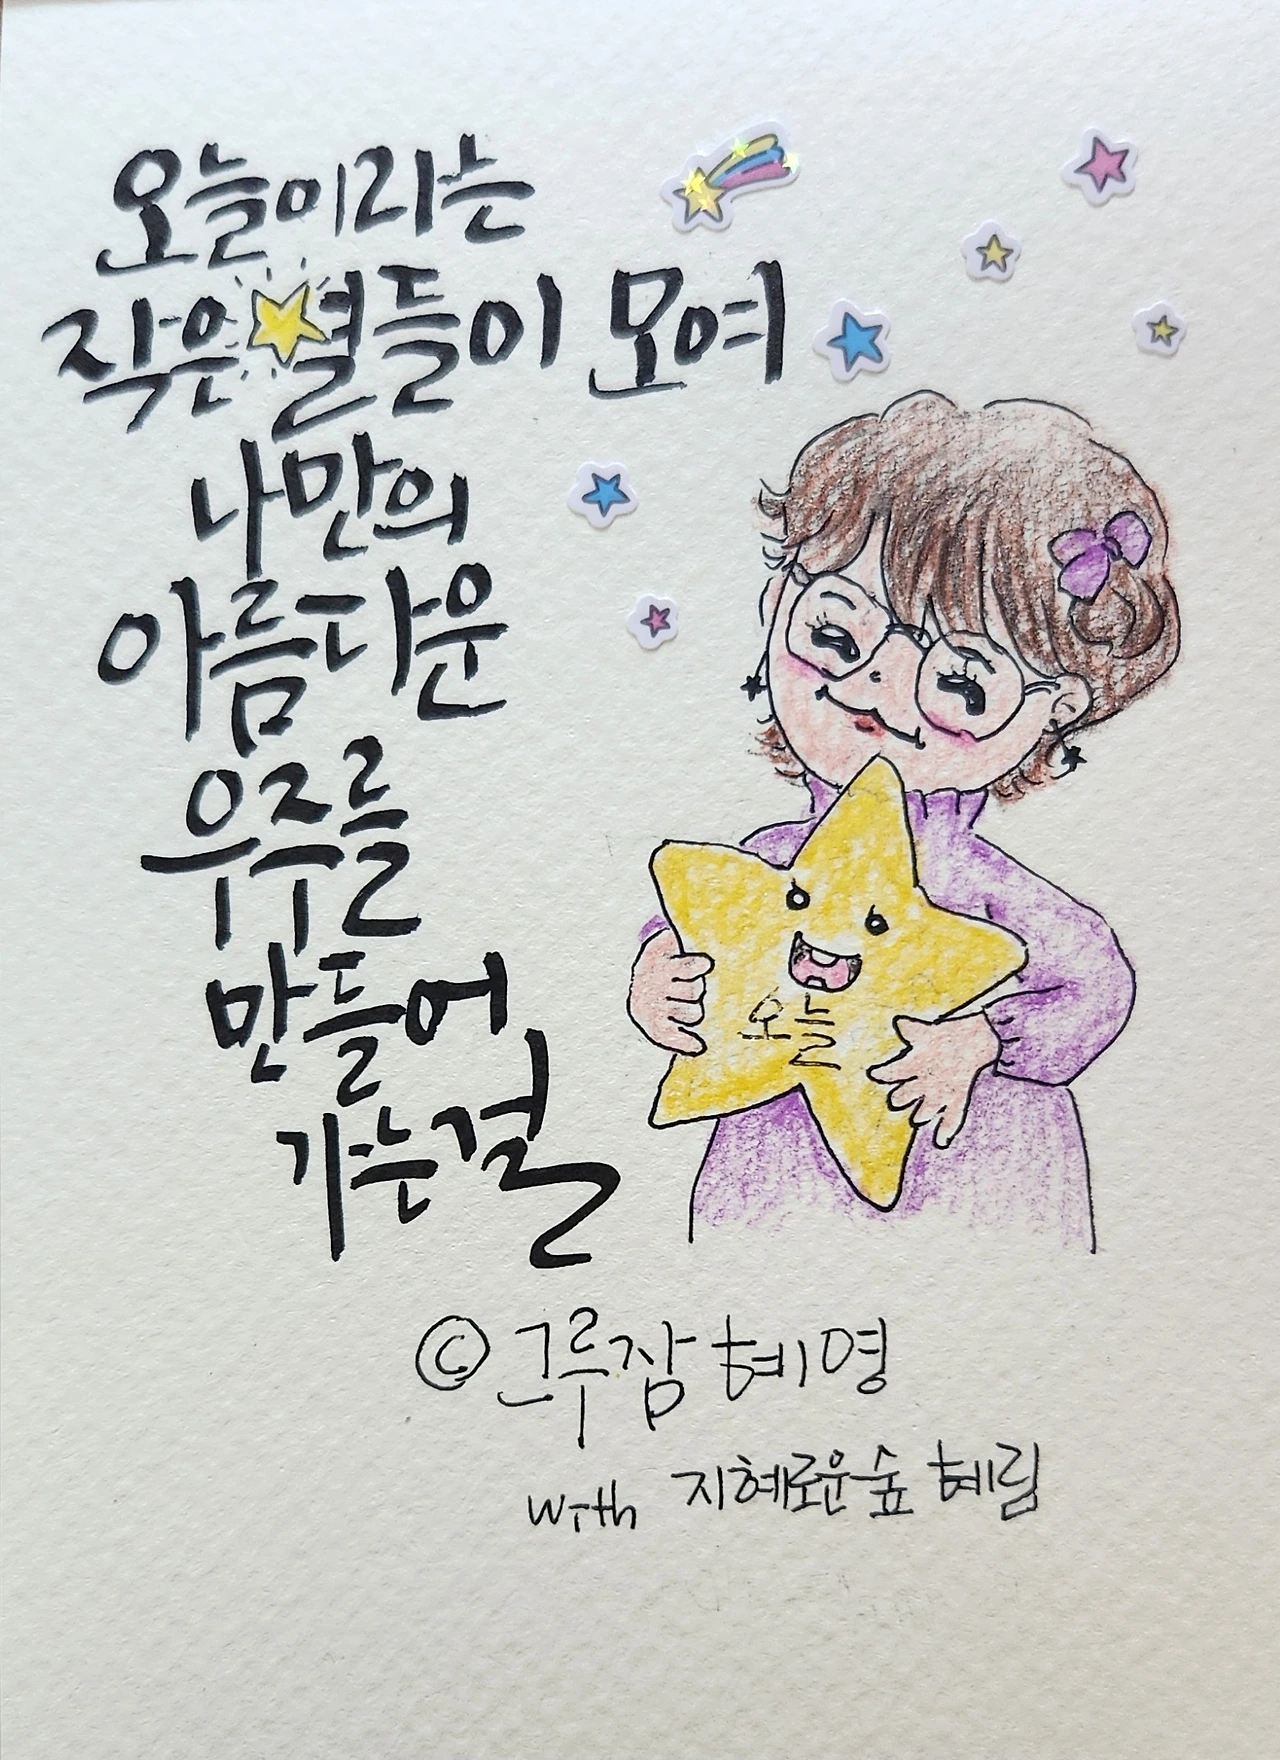 오늘이라는
작은 별들이 모여
나만의
아름다운
우주를
만들어
가는걸
오늘
© 그루잠 혜영
with 지혜로운숲 혜림